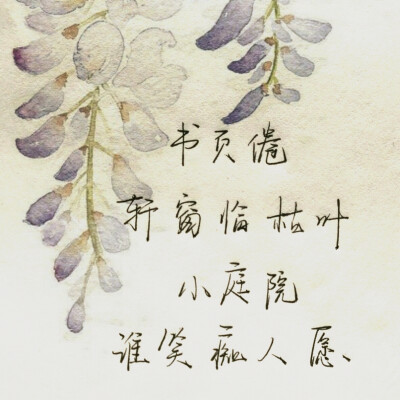 书页倦
轩窗临枯叶
小庭院
谁笑痴人愿